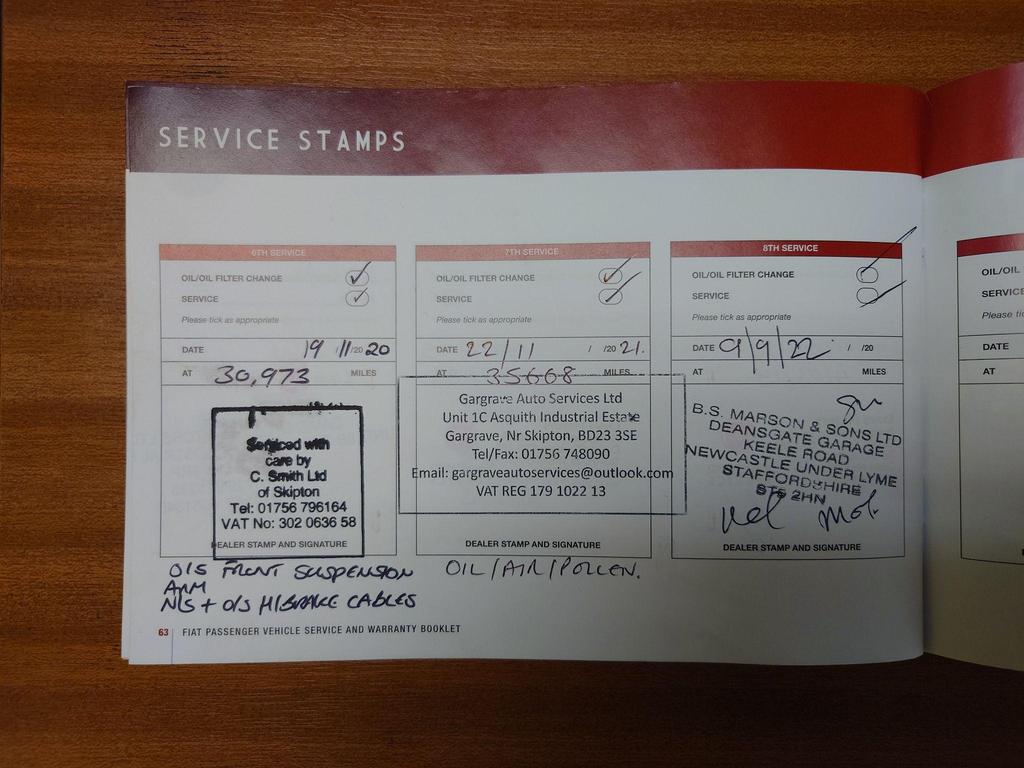 SERVICE STAMPS
6TH SERVICE
OIL/OIL FILTER CHANGE
SERVICE
Please tick as appropriate
DATE 19 /11/20 20
AT 30,973 MILES
Serviced with
care by
C. Smith Ltd
of Skipton
Tel: 01756 796164
VAT No: 302 0636 58
DEALER STAMP AND SIGNATURE
O/S FRONT SUSPENSION
ARM
N/S + O/S H/BRAKE CABLES
7TH SERVICE
OIL/OIL FILTER CHANGE
SERVICE
Please tick as appropriate
DATE 22/11 / /20 21.
AT 35668 MILES
Gargrave Auto Services Ltd
Unit 1C Asquith Industrial Estate
Gargrave, Nr Skipton, BD23 3SE
Tel/Fax: 01756 748090
Email: gargraveautoservices@outlook.com
VAT REG 179 1022 13
DEALER STAMP AND SIGNATURE
OIL/AIR/POLLEN.
8TH SERVICE
OIL/OIL FILTER CHANGE
SERVICE
Please tick as appropriate
DATE 9/9/22 / /20
AT MILES
B.S. MARSON & SONS LTD
DEANSGATE GARAGE
KEELE ROAD
NEWCASTLE UNDER LYME
STAFFORDSHIRE
ST5 2HN
DEALER STAMP AND SIGNATURE
OIL/OIL
SERVICE
Please tic
DATE
AT
63 FIAT PASSENGER VEHICLE SERVICE AND WARRANTY BOOKLET